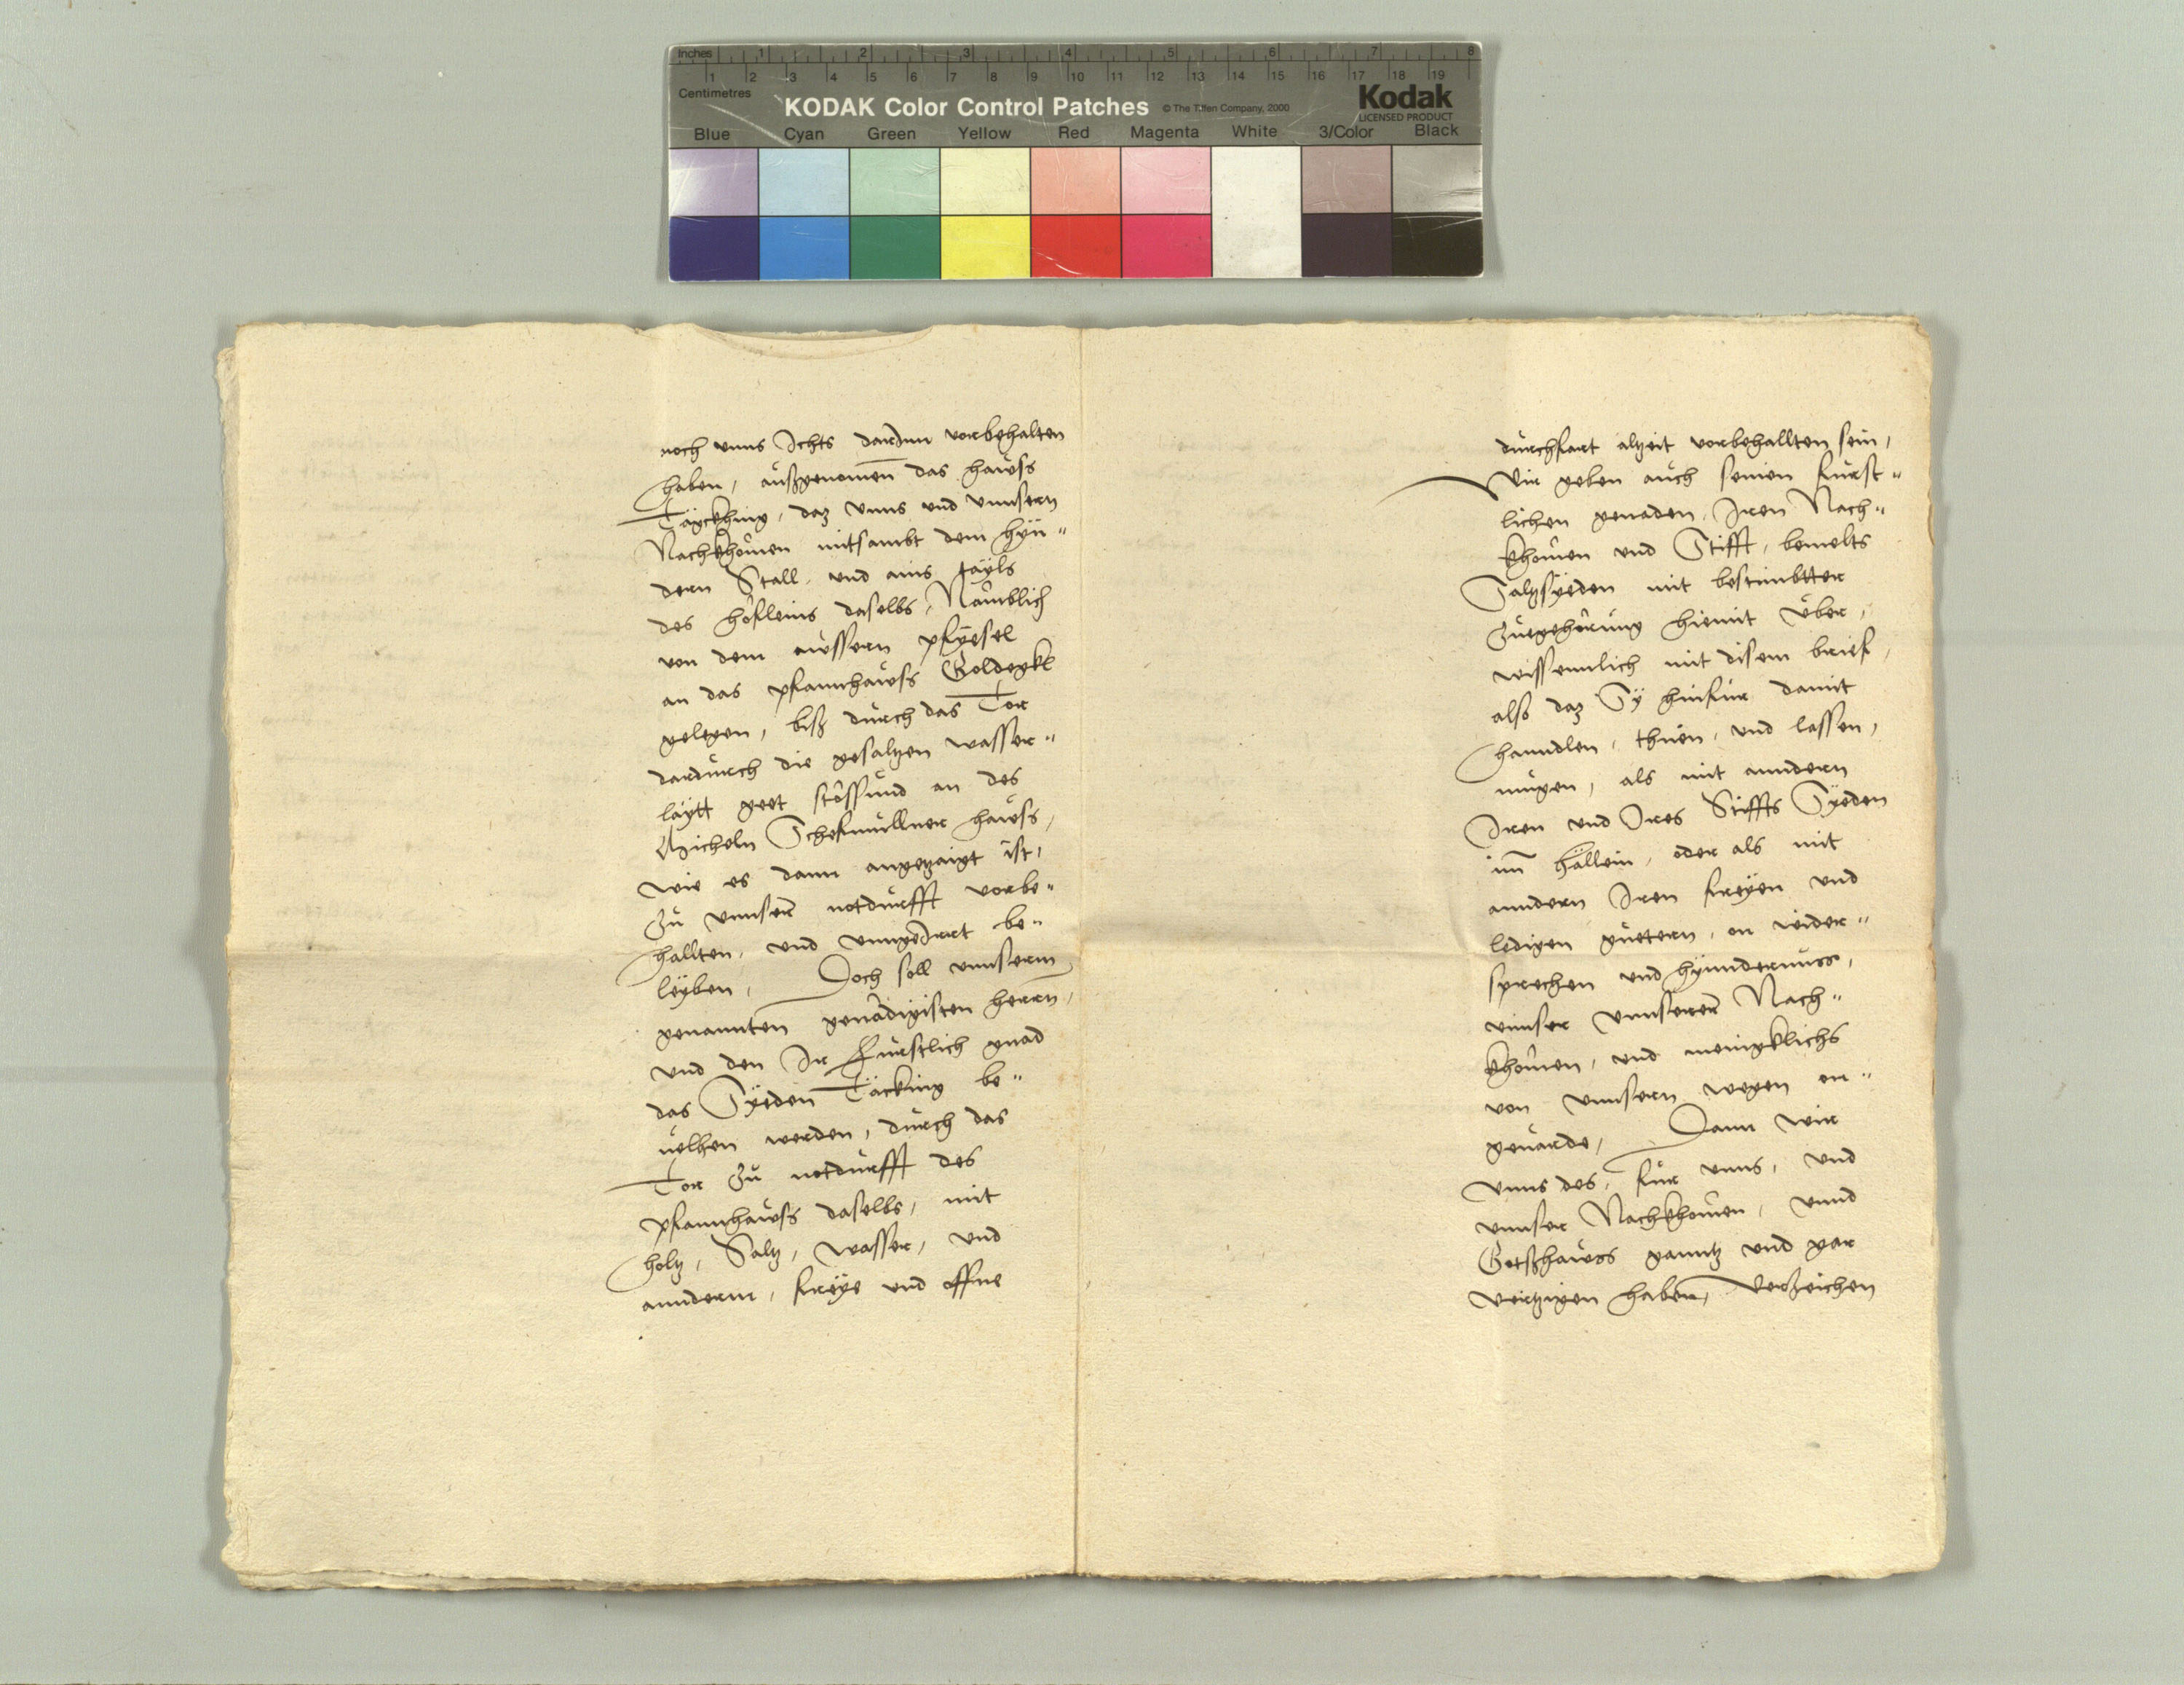 Inches 1 2 3 4 5 6 7 8
1 2 3 4 5 6 7 8 9 10 11 12 13 14 15 16 17 18 19
Centimetres
KODAK Color Control Patches © The Tiffen Company, 2000 Kodak
LICENSED PRODUCT
Blue Cyan Green Yellow Red Magenta White 3/Color Black
noch vnns Ichts darInn vorbehalten
haben, außgenomen das hawss
Täyckhing, daz vnns vnd vnnsern
Nachkhomen mitsambt dem hyn„
dern Stall, vnd ains tayls
des höfleins daselbs, Nämblich
von dem aussern pfyesel
an das pfannhawss Goldegkl
gelegen, biß durch das Tor
dardurch die gesaltzen wasser„
laytt geet stossund an des
Micheln Schefmullner hawss,
wie es dann angetzaigt ist,
Zu vnnser notdurfft vorbe„
hallten, vnd vnngeirrt be„
leyben, Doch soll vnnserm
genannten genädigisten herrn,
vnd den Ir Furstlich gnad
das Syeden Täcking be„
uelhen werden, durch das
Tor Zu notdurfft des
pfannhawss daselbs, mit
holtz, Saltz, wasser, vnd
annderm, freye vnd offne
durchfart altzeit vorbehallten sein,
Wir geben auch seinen furst„
lichen genaden, Iren Nach„
khomen vnd Stifft, bemelts
Saltzsyeden mit bestimbtter
Zuegehörung hiemit über,
wissenntlich mit disem brief,
also daz Sy hinfur damit
hanndlen, thuen, vnd lassen,
mugen, als mit anndern
Iren vnd Ires Stiffts Syeden
im hällein, oder als mit
anndern Iren freyen vnd
ledigen guetern, on wider„
sprechen vnd hynndernuss,
vnnser vnnserer Nach„
khomen, vnd menigklichs
von vnnsern wegen on„
geuarde, Dann wir
vnns des, fur vnns, vnd
vnnser Nachkhomen, vnnd
Gotßhawss ganntz vnd gar
vertzigen haben, Verzeichen